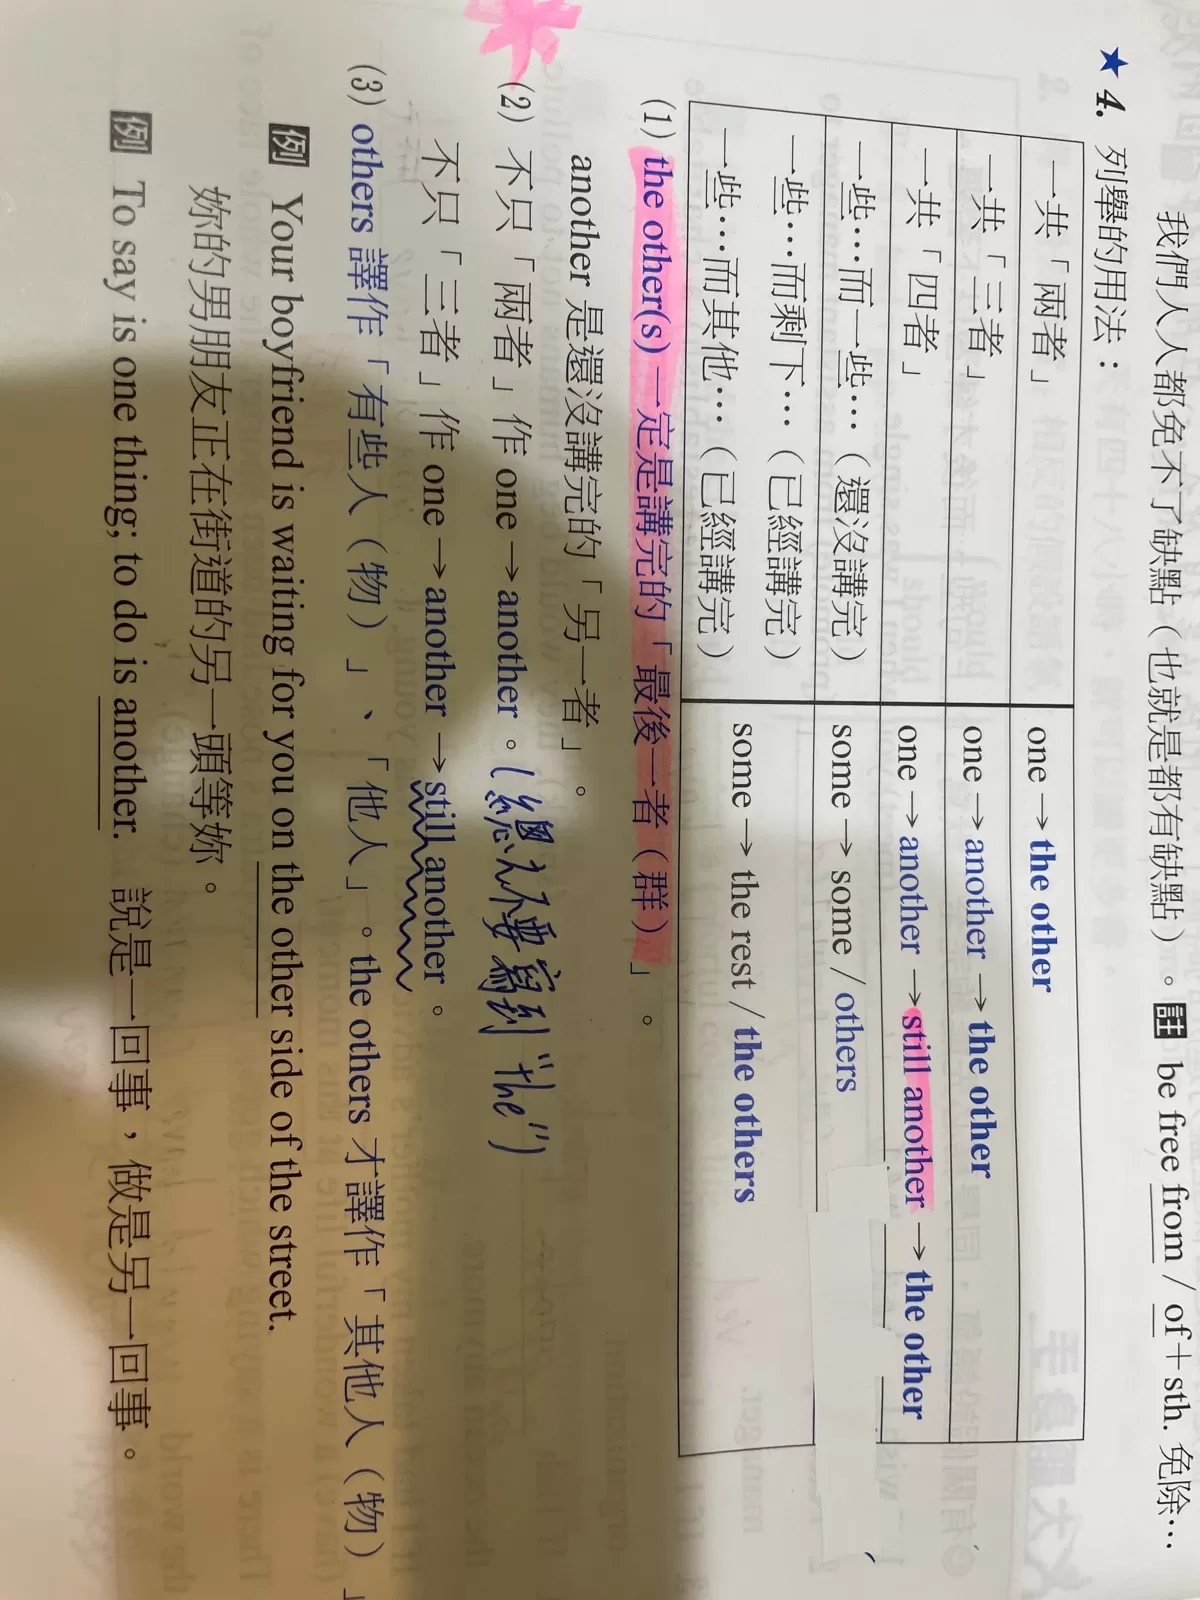 我們人人都免不了缺點（也就是都有缺點）。註 be free from / of＋sth. 免除…
★ 4. 列舉的用法：
一共「兩者」 one → the other
一共「三者」 one → another → the other
一共「四者」 one → another → still another → the other
一些…而一些…（還沒講完） some → some / others
一些…而剩下…（已經講完）
some → the rest / the others
一些…而其他…（已經講完）
(1) the other(s) 一定是講完的「最後一者（群）」。
another 是還沒講完的「另一者」。
(2) 不只「兩者」作 one → another 。（總之不要寫到 "the"）
不只「三者」作 one → another → still another 。
(3) others 譯作「有些人（物）」、「他人」。the others 才譯作「其他人（物）」
例 Your boyfriend is waiting for you on the other side of the street.
妳的男朋友正在街道的另一頭等妳。
例 To say is one thing; to do is another. 說是一回事，做是另一回事。